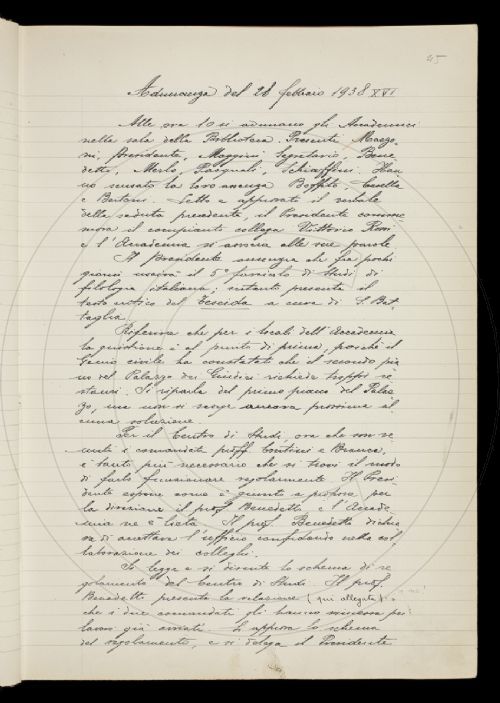 45
Adunanza del 28 febbraio 1938 XVI
Alle ore 10 si adunano gli Accademici
nella sala della Biblioteca. Presenti Marzo-
ni, presidente, Maggini segretario, Bene
detto, Merlo, Pasquali, Schiaffini. Han
no scusato la loro assenza Casella
e Bertoni. Letto e approvato il verbale
della seduta precedente, il Presidente comme
mora il compianto collega Vittorio Rossi
e l'Accademia si associa alle sue parole
Il presidente annunzia che fra pochi
giorni uscirà il 5° fascicolo di Studi di
filologia italiana; intanto presenta il
testo critico del Teseida a cura di S. Bat-
taglia.
Riferisce che per i locali dell'Accademia
la questione è al punto di prima, poiché il
Genio civile ha constatato che il secondo pia
no del Palazzo dei Giudici richiede troppi re
stauri. Si riparla del primo piano del Palaz
zo, ma non si scorge ancora prossima al
cuna soluzione.
Per il Centro di Studi, ora che son ve
nuti i comandati proff. Contini e Branca,
è tanto più necessario che si trovi il modo
di farlo funzionare regolarmente. Il Presi
dente espone come è giunto a proporre per
la direzione il prof. Benedetto e l'Accade
mia ne è lieta. Il prof. Benedetto dichia
ra di accettare l'ufficio confidando nella col
laborazione dei colleghi.
Si legge e si discute lo schema di re
golamento del Centro di Studi. Il prof.
Benedetto presenta la relazione (qui allegata)
che i due comandati gli hanno per i
lavori già avviati. Si approva lo schema
del regolamento, e si delega il Presidente